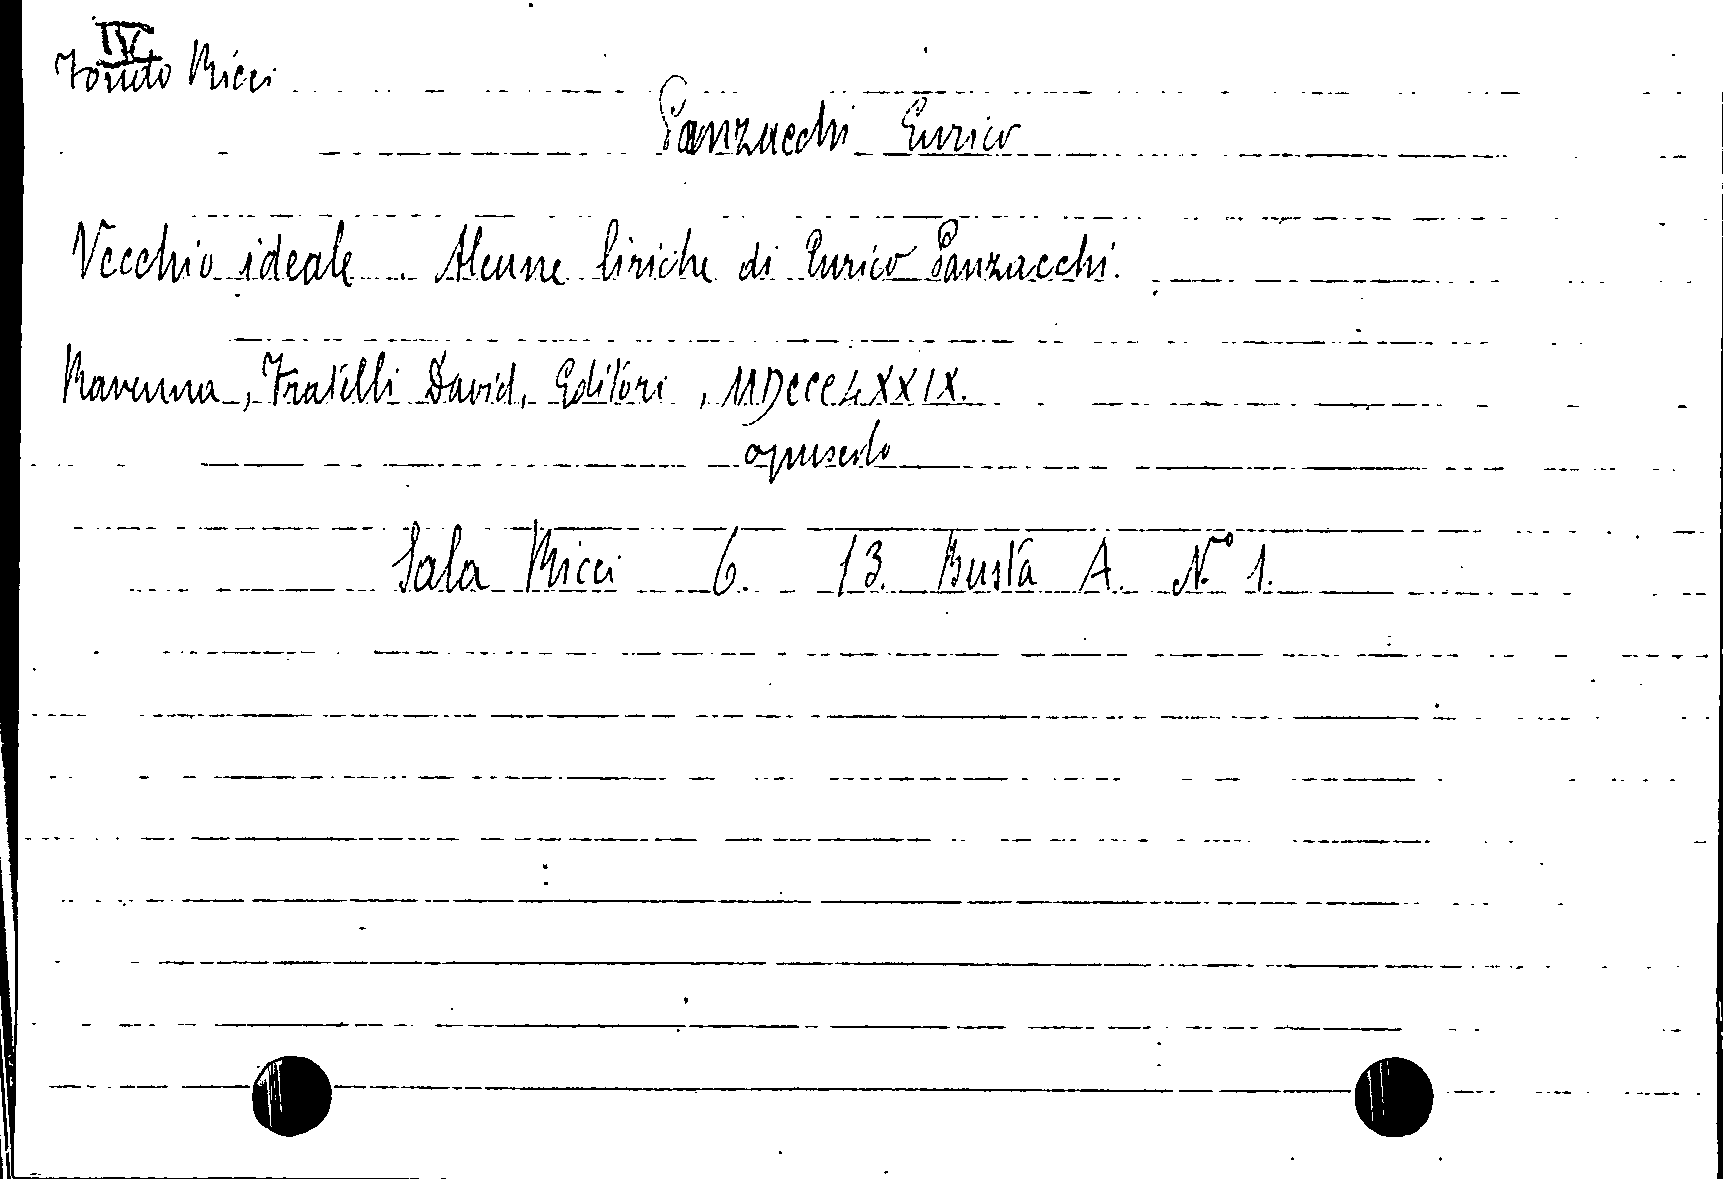 IV
Fondo Ricci
Panzacchi Enrico
Vecchio ideale. Alcune liriche di Enrico Panzacchi.
Ravenna, Fratelli David, Editori, MDCCCLXXIX.
opuscolo
Sala Ricci 6. 13. Busta A. N.º 1.